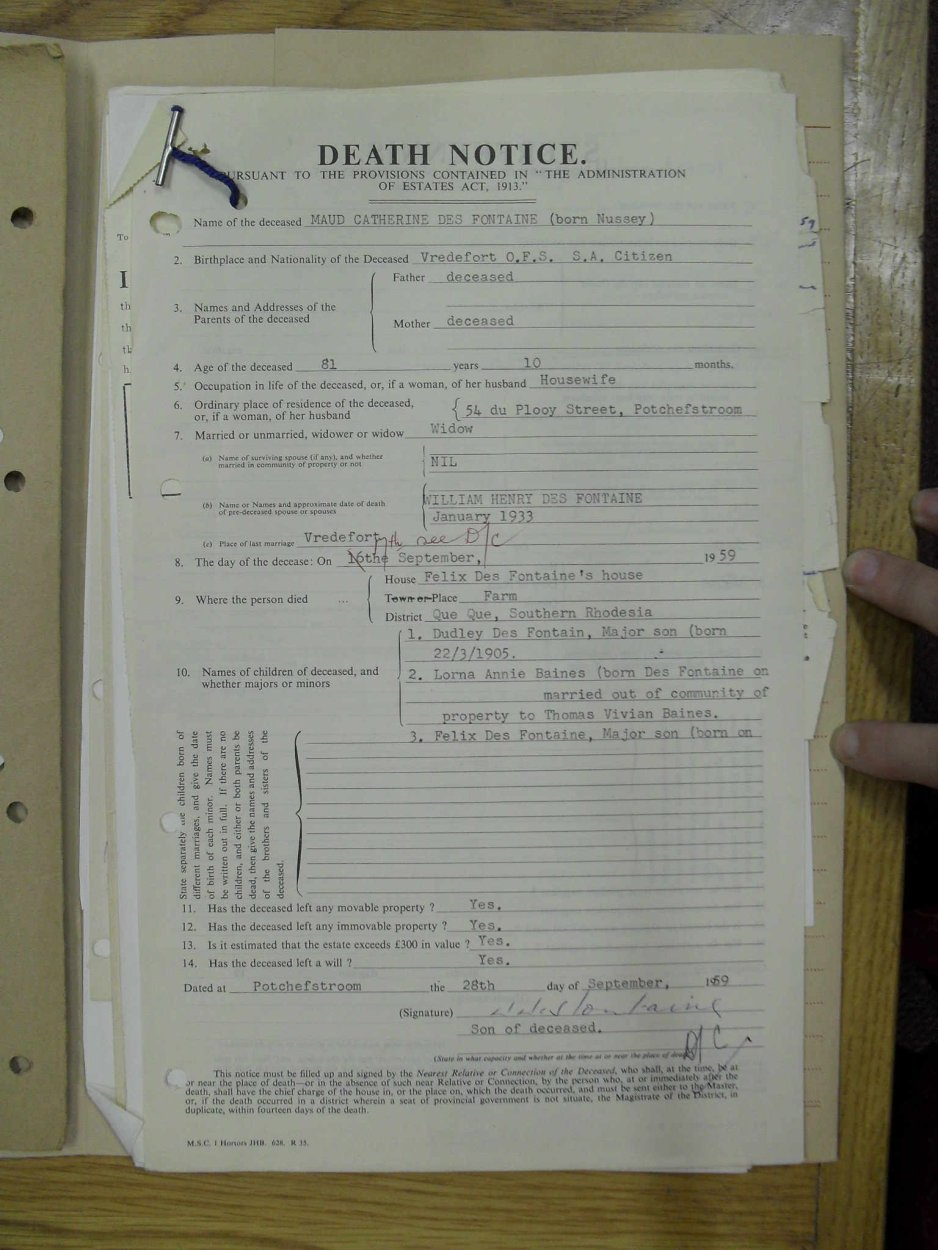 DEATH NOTICE.
PURSUANT TO THE PROVISIONS CONTAINED IN "THE ADMINISTRATION
OF ESTATES ACT, 1913."
Name of the deceased MAUD CATHERINE DES FONTAINE (born Nussey)
2. Birthplace and Nationality of the Deceased Vredefort O.F.S. S.A. Citizen
3. Names and Addresses of the Parents of the deceased
Father deceased
Mother deceased
4. Age of the deceased 81 years 10 months.
5. Occupation in life of the deceased, or, if a woman, of her husband Housewife
6. Ordinary place of residence of the deceased,
or, if a woman, of her husband 54 du Plooy Street, Potchefstroom
7. Married or unmarried, widower or widow Widow
(a) Name of surviving spouse (if any), and whether
married in community of property or not NIL
(b) Name or Names and approximate date of death
of pre-deceased spouse or spouses WILLIAM HENRY DES FONTAINE
January 1933
(c) Place of last marriage Vredefort
7th see D/C
8. The day of the decease: On 16the September, 1959
House Felix Des Fontaine's house
9. Where the person died ... Town or Place Farm
District Que Que, Southern Rhodesia
1. Dudley Des Fontain, Major son (born
22/3/1905.
10. Names of children of deceased, and
whether majors or minors
2. Lorna Annie Baines (born Des Fontaine on
married out of community of
property to Thomas Vivian Baines.
3. Felix Des Fontaine, Major son (born on
State separately the children born of
different marriages, and give the date
of birth of each minor. Names must
be written out in full. If there are no
children, and either or both parents be
dead, then give the names and addresses
of the brothers and sisters of the
deceased.
11. Has the deceased left any movable property ? Yes.
12. Has the deceased left any immovable property ? Yes.
13. Is it estimated that the estate exceeds £300 in value ? Yes.
14. Has the deceased left a will ? Yes.
Dated at Potchefstroom the 28th day of September, 1959
(Signature)
Son of deceased.
D/C
(State in what capacity and whether at the time at or near the place of death)
This notice must be filled up and signed by the Nearest Relative or Connection of the Deceased, who shall, at the time, be at
or near the place of death—or in the absence of such near Relative or Connection, by the person who, at or immediately after the
death, shall have the chief charge of the house in, or the place on, which the death occurred, and must be sent either to the Master,
or, if the death occurred in a district wherein a seat of provincial government is not situate, the Magistrate of the District, in
duplicate, within fourteen days of the death.
M.S.C. 1 Hortors JHB. 628. R 35.
To
I
th
th
h
59